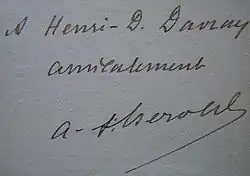 A Henri-D. Davray
amicalement
A-F. Herold